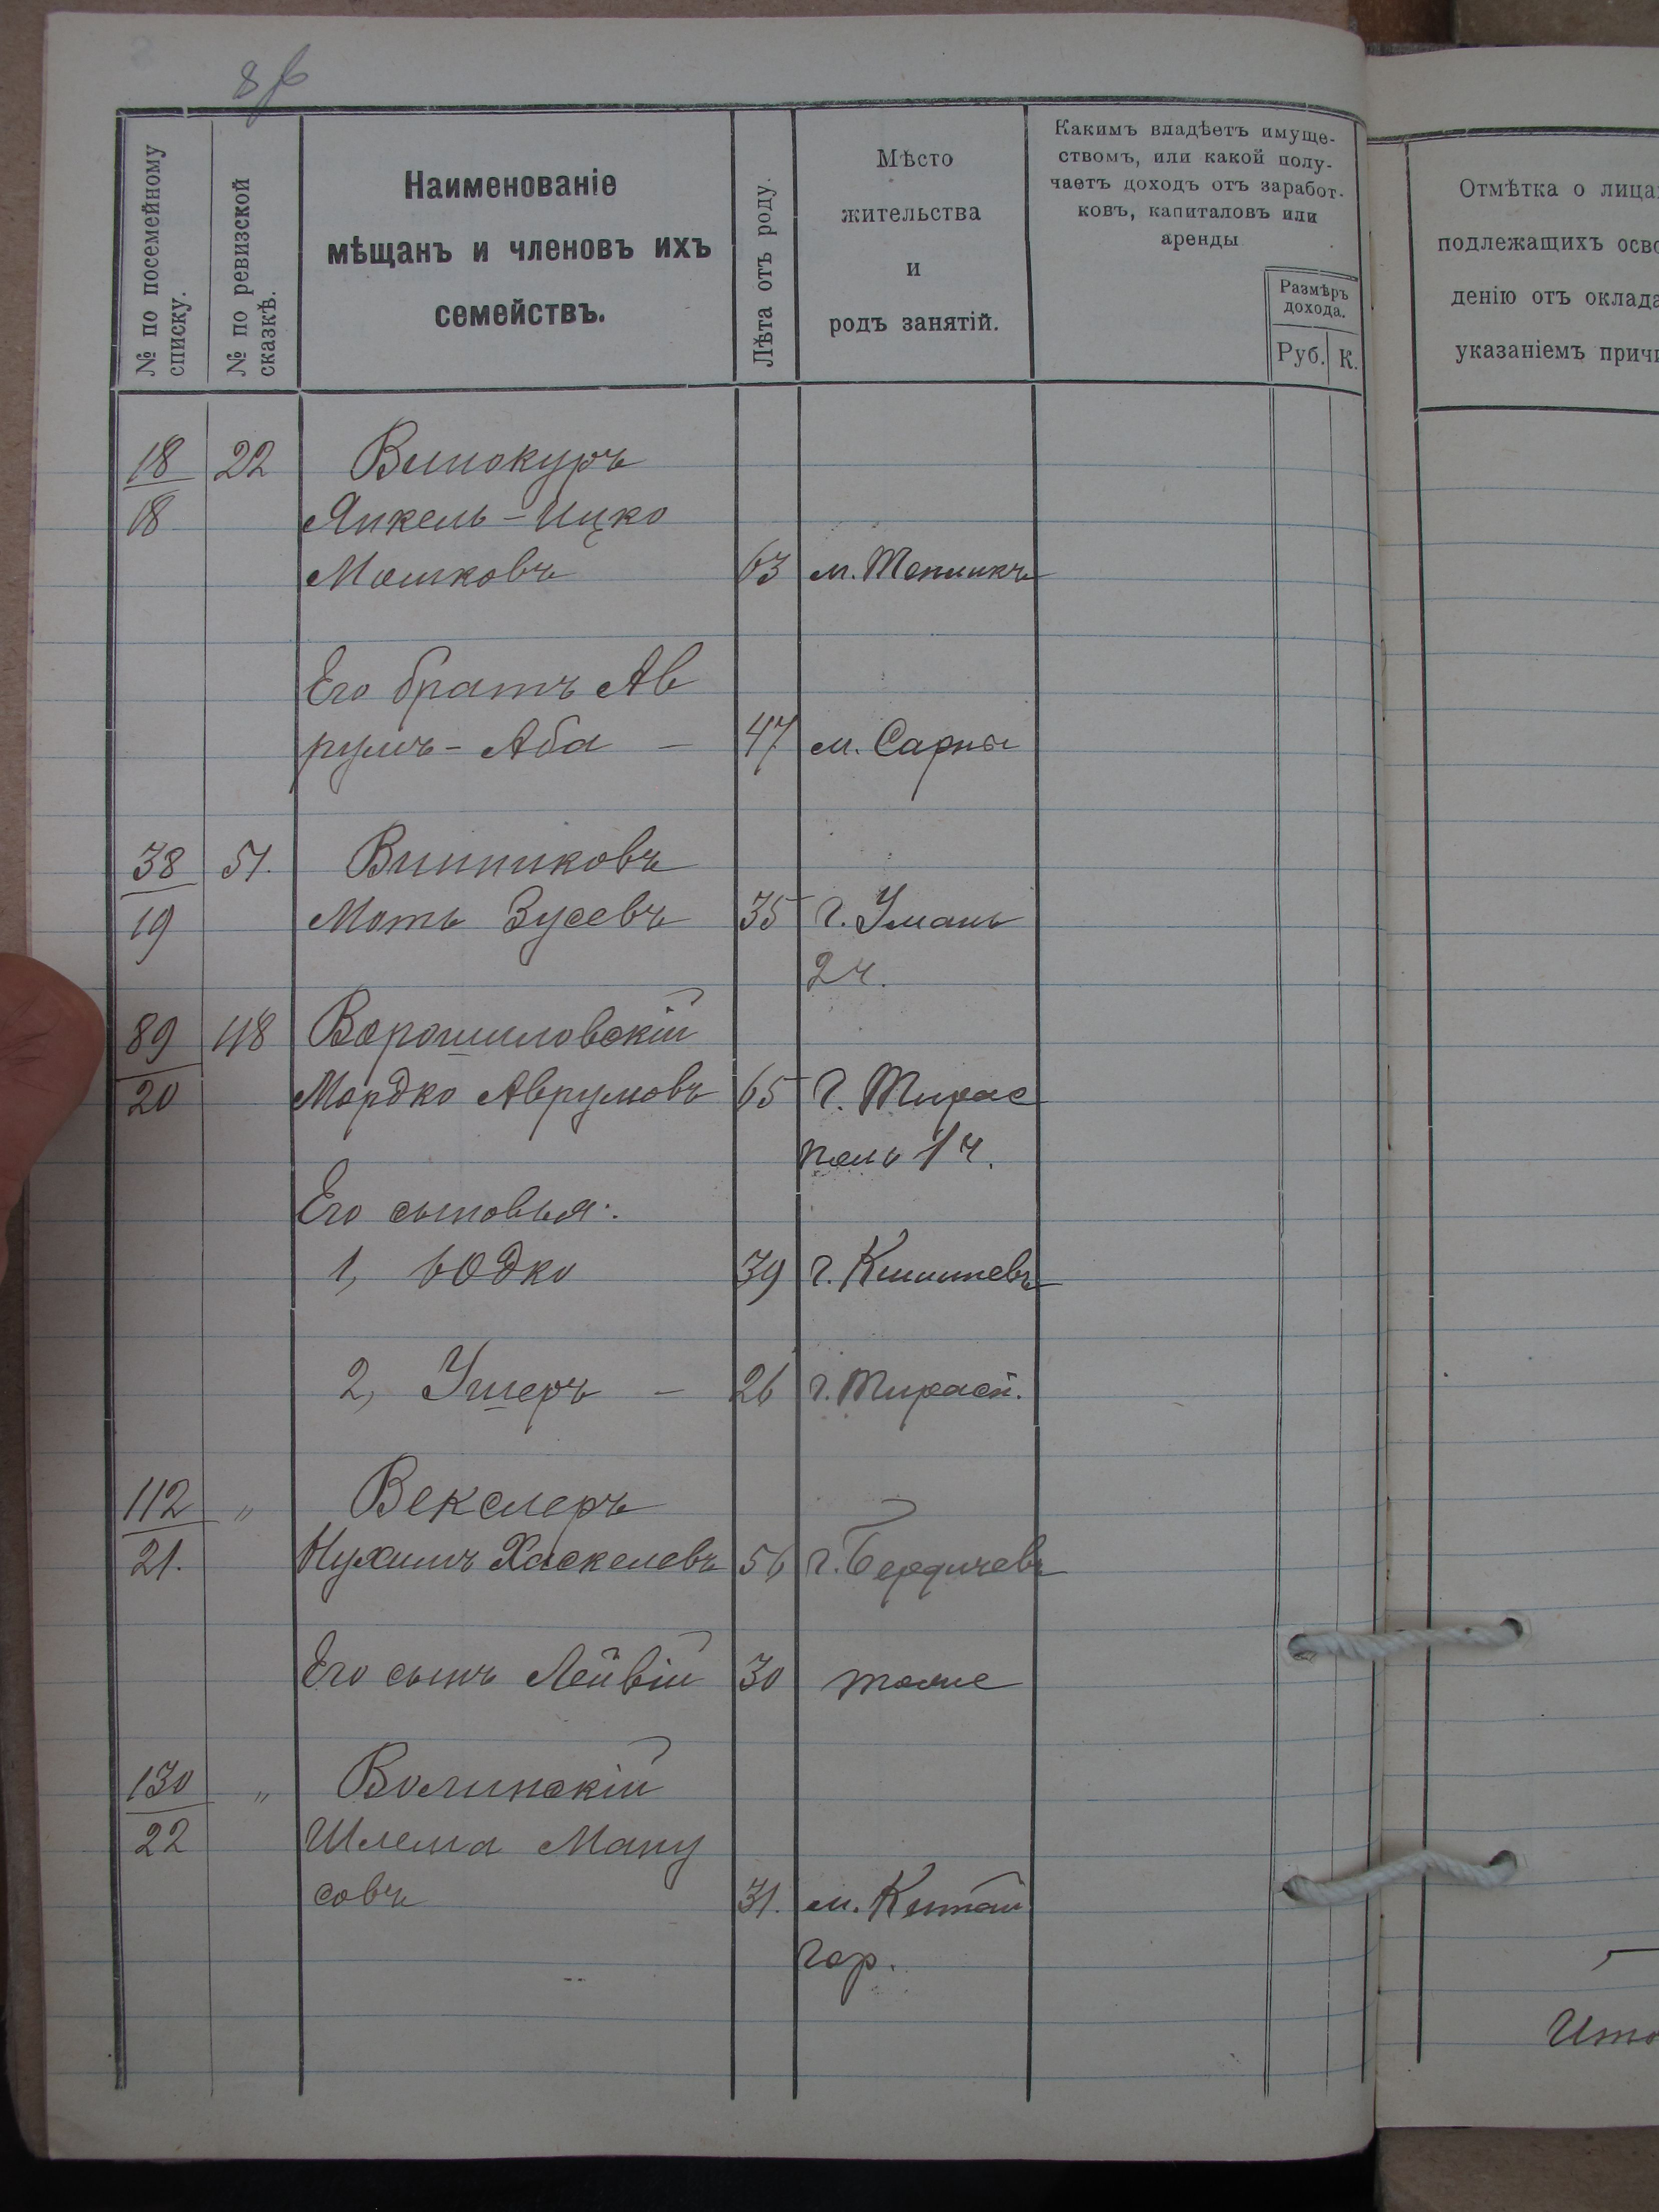 № по посемейному
списку.
№ по ревизской
сказкѣ.
Наименованіе
мѣщанъ и членовъ ихъ
семействъ.
Лѣта отъ роду.
Мѣсто
жительства
и
родъ занятій.
Какимъ владѣетъ имуще-
ствомъ, или какой полу-
чаетъ доходъ отъ заработ-
ковъ, капиталовъ или
аренды
Размѣръ
дохода.
Руб. К.
Отмѣтка о лица
подлежащихъ осво
денію отъ оклада
указаніемъ причи
18 22 Винокуръ
18 Янкель-Ицко
Мошковъ 63 м. Тепликъ
Его братъ Ав
румъ-Аба - 47 м. Сарны
38 51. Винниковъ
19 Моть Зусевъ 35 г. Умань
2 ч.
89 118 Ворошиловскій
20 Мордко Аврумовъ 65 г. Тирас
поль 1 ч.
Его сыновья:
1, Юдко 39 г. Кишиневъ
2, Ушеръ - 26 г. Тирасп.
112 " Векслеръ
21. Нухимъ Хаскелевъ 56 г. Бердичевъ
Его сынъ Лейвій 30 тоже
130 " Волинскій
22 Шлема Ману
совъ 31. м. Китай
гор.
Ито